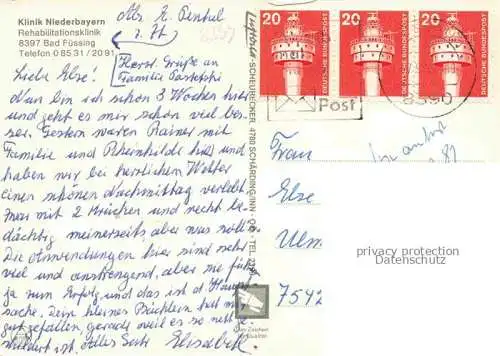 Klinik Niederbayern
Rehabilitationsklinik
8397 Bad Füssing
Telefon 0 85 31 / 20 91
Abs. E.
z. Zt
Herzl. Grüße an
Familie
Liebe Else!
Nun bin ich schon 3 Wochen hier
und geht es mir schon viel bes-
ser. Gestern waren Rainer mit
Familie und Rheinhilde hier und
haben wir bei herrlichem Wetter
einen schönen Nachmittag verlebt
mit 2 Krücken und recht be-
dächtig meinerseits aber was soll's.
Die Anwendungen hier sind sehr
viel und anstrengend, aber sie
ja zum Erfolg und das ist d. Haupt-
sache. Dein kleines Büchlein hat mir
gut gefallen, gerade weil es so nett
ist. Alles Gute Elisabeth
Luftbild-SCHEURECKER, 4780 SCHÄRDING/INN - OÖ - TEL.
20 20 20
DEUTSCHE BUNDESPOST
DEUTSCHE BUNDESPOST
DEUTSCHE BUNDESPOST
Post
8390
Frau
Else
Ulm
7542
privacy protection
Datenschutz